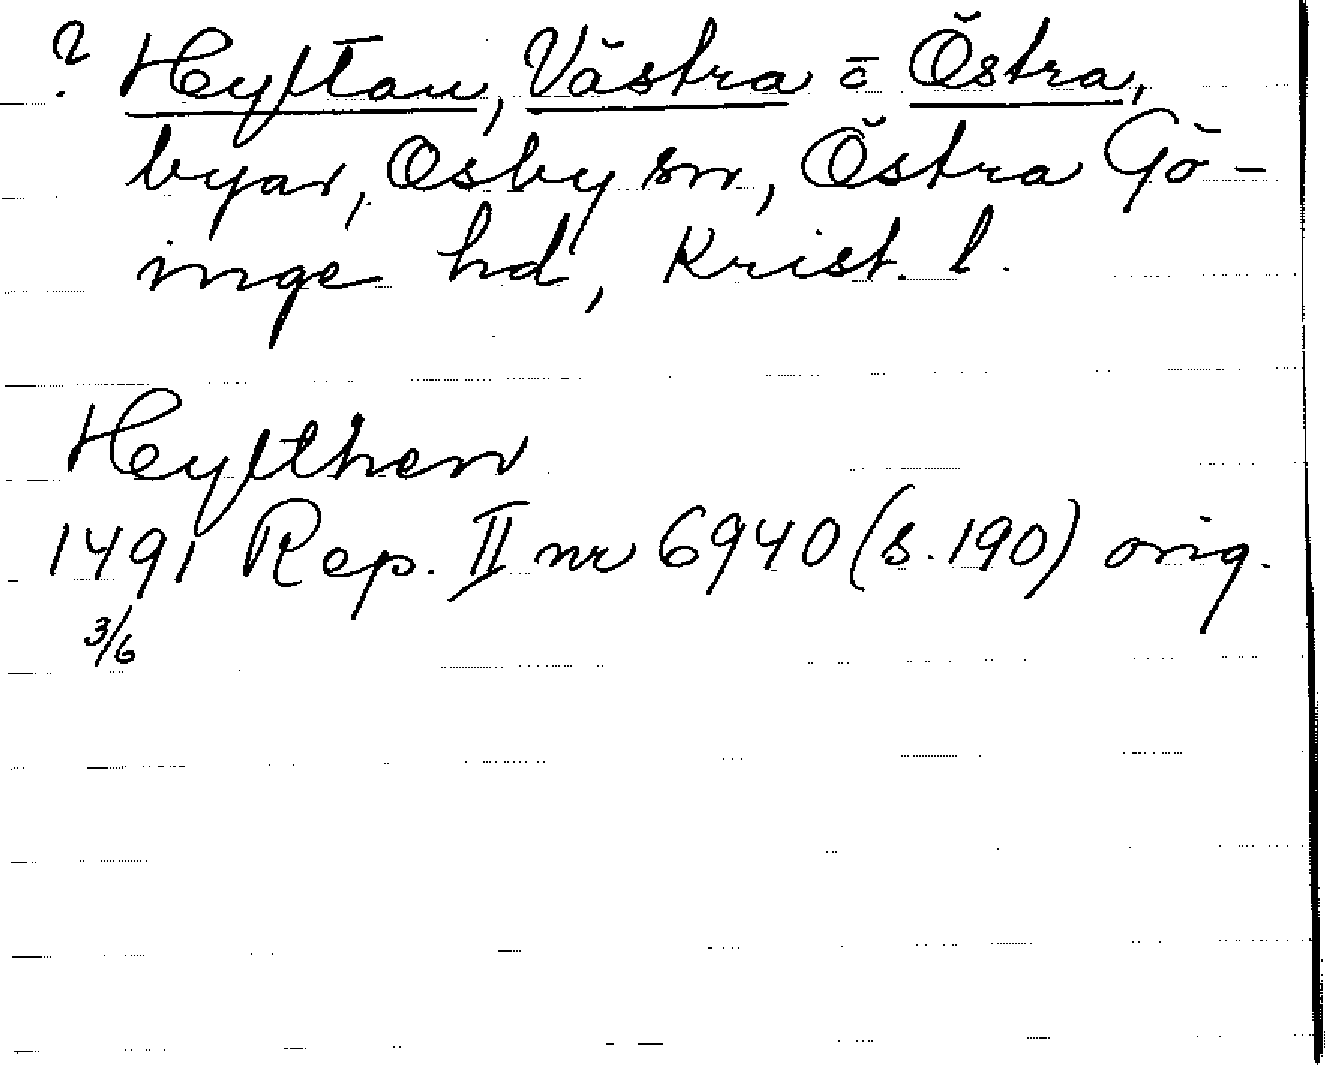 ? Hyltan, Västra ō Östra,
byar, Osby sn, Östra Gö-
inge hd, Krist. l.
Hylthen
1491 Rep. II nr 6940 (s. 190) orig.
3/6